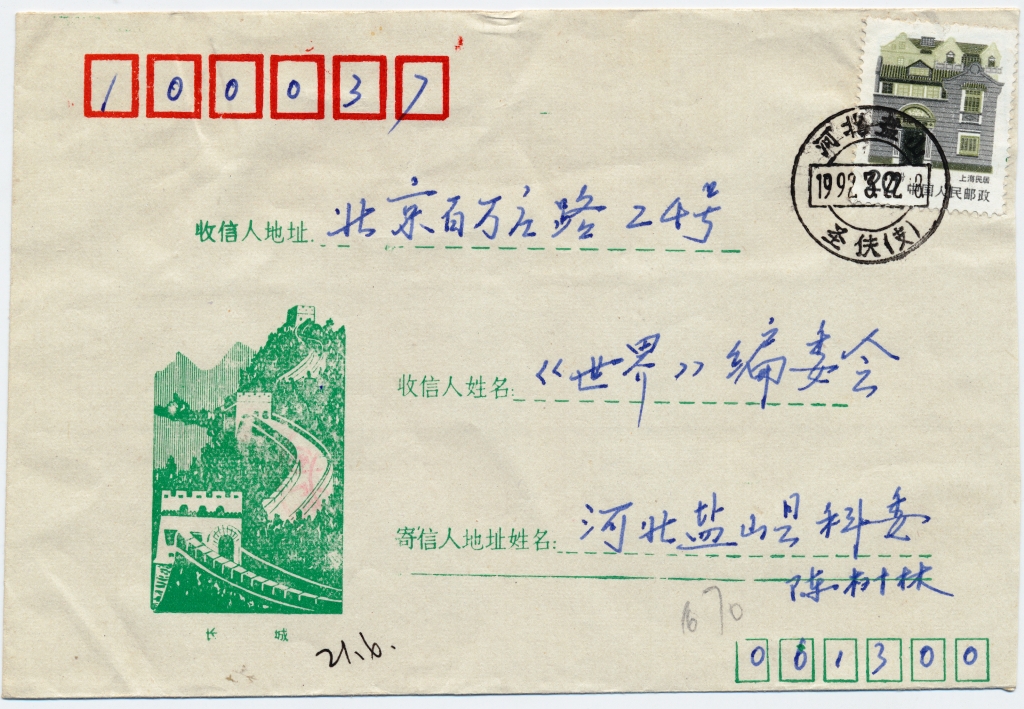 100037
上海民居
中国人民邮政
河北盐山
1992
圣佛(支)
收信人地址: 北京百万庄路24号
收信人姓名: 《世界》编委会
寄信人地址姓名: 河北盐山县科委
陈树林
1670
长城
21.6.
061300